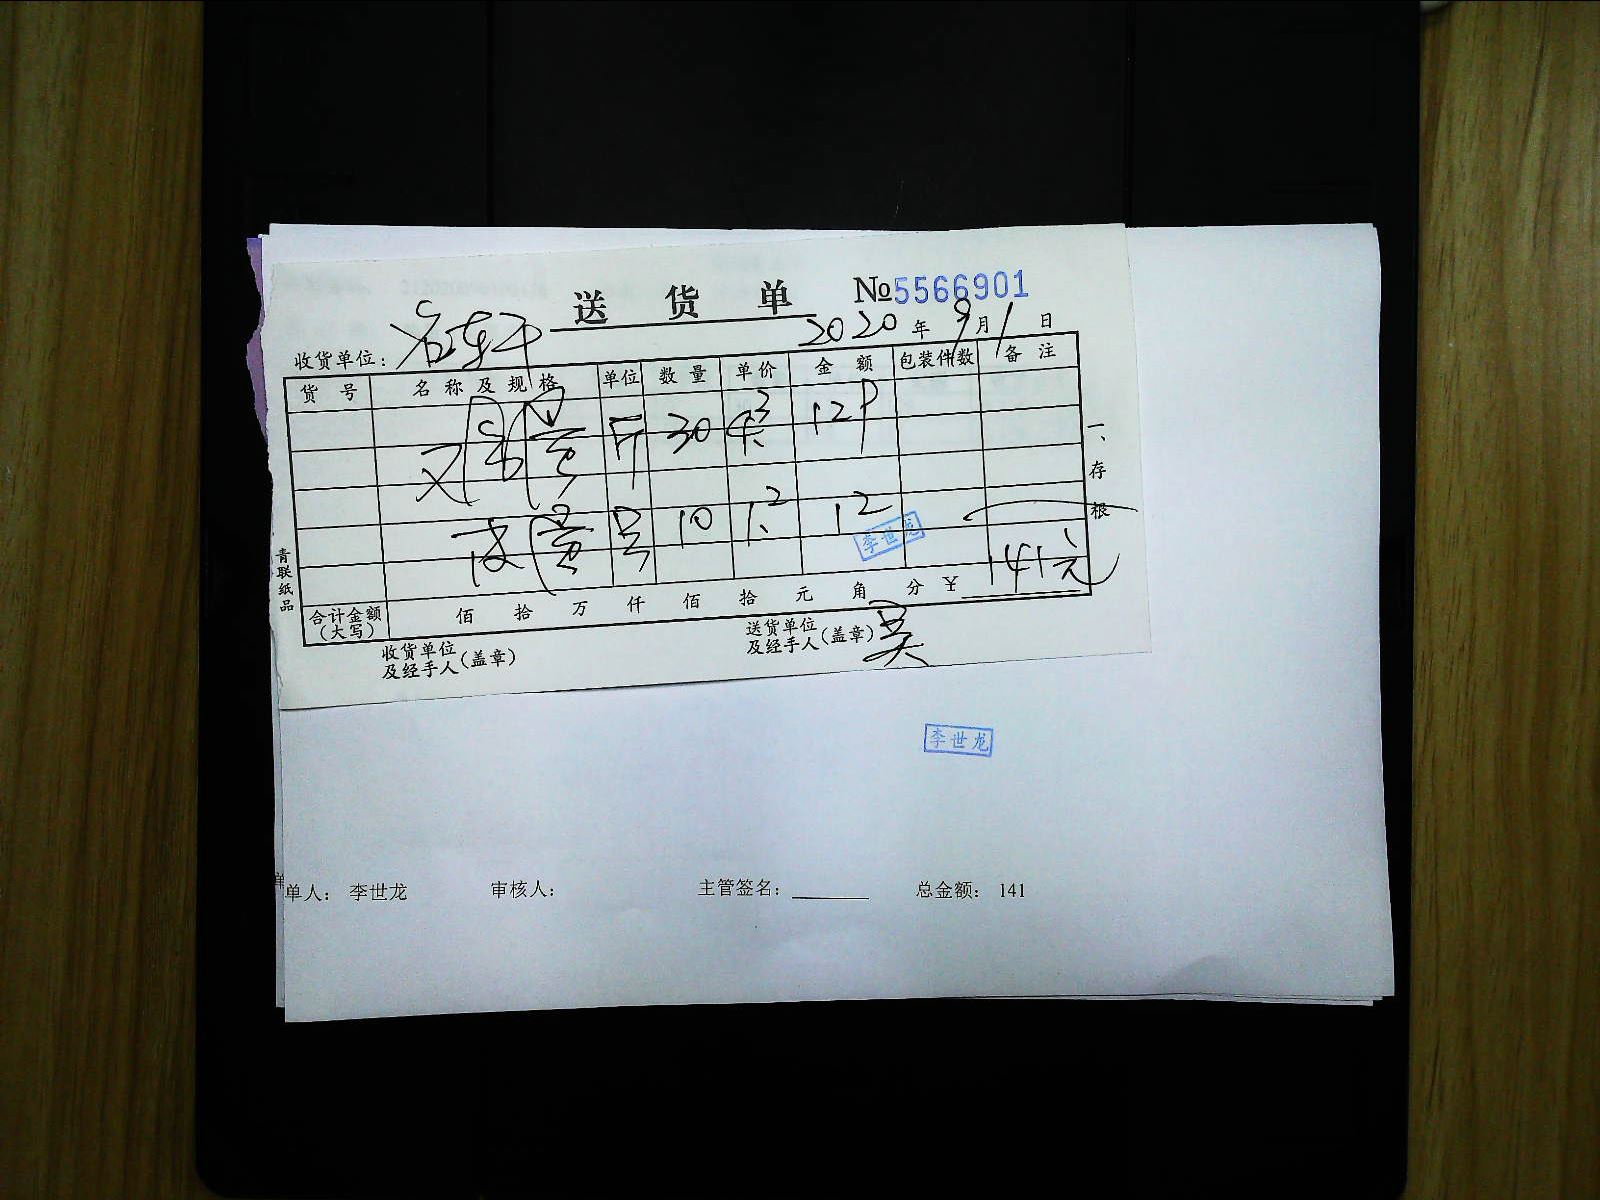 送货单 №5566901
收货单位: 2020年9月1日
货号 名称及规格 单位 数量 单价 金额 包装件数 备注
斤 30 4.3 129
皮蛋 10 1.2 12
李世龙
141元
合计金额(大写) 佰 拾 万 仟 佰 拾 元 角 分 ¥
收货单位及经手人(盖章) 送货单位及经手人(盖章) 吴
一、存根
青联纸品
李世龙
单人: 李世龙 审核人: 主管签名: 总金额: 141